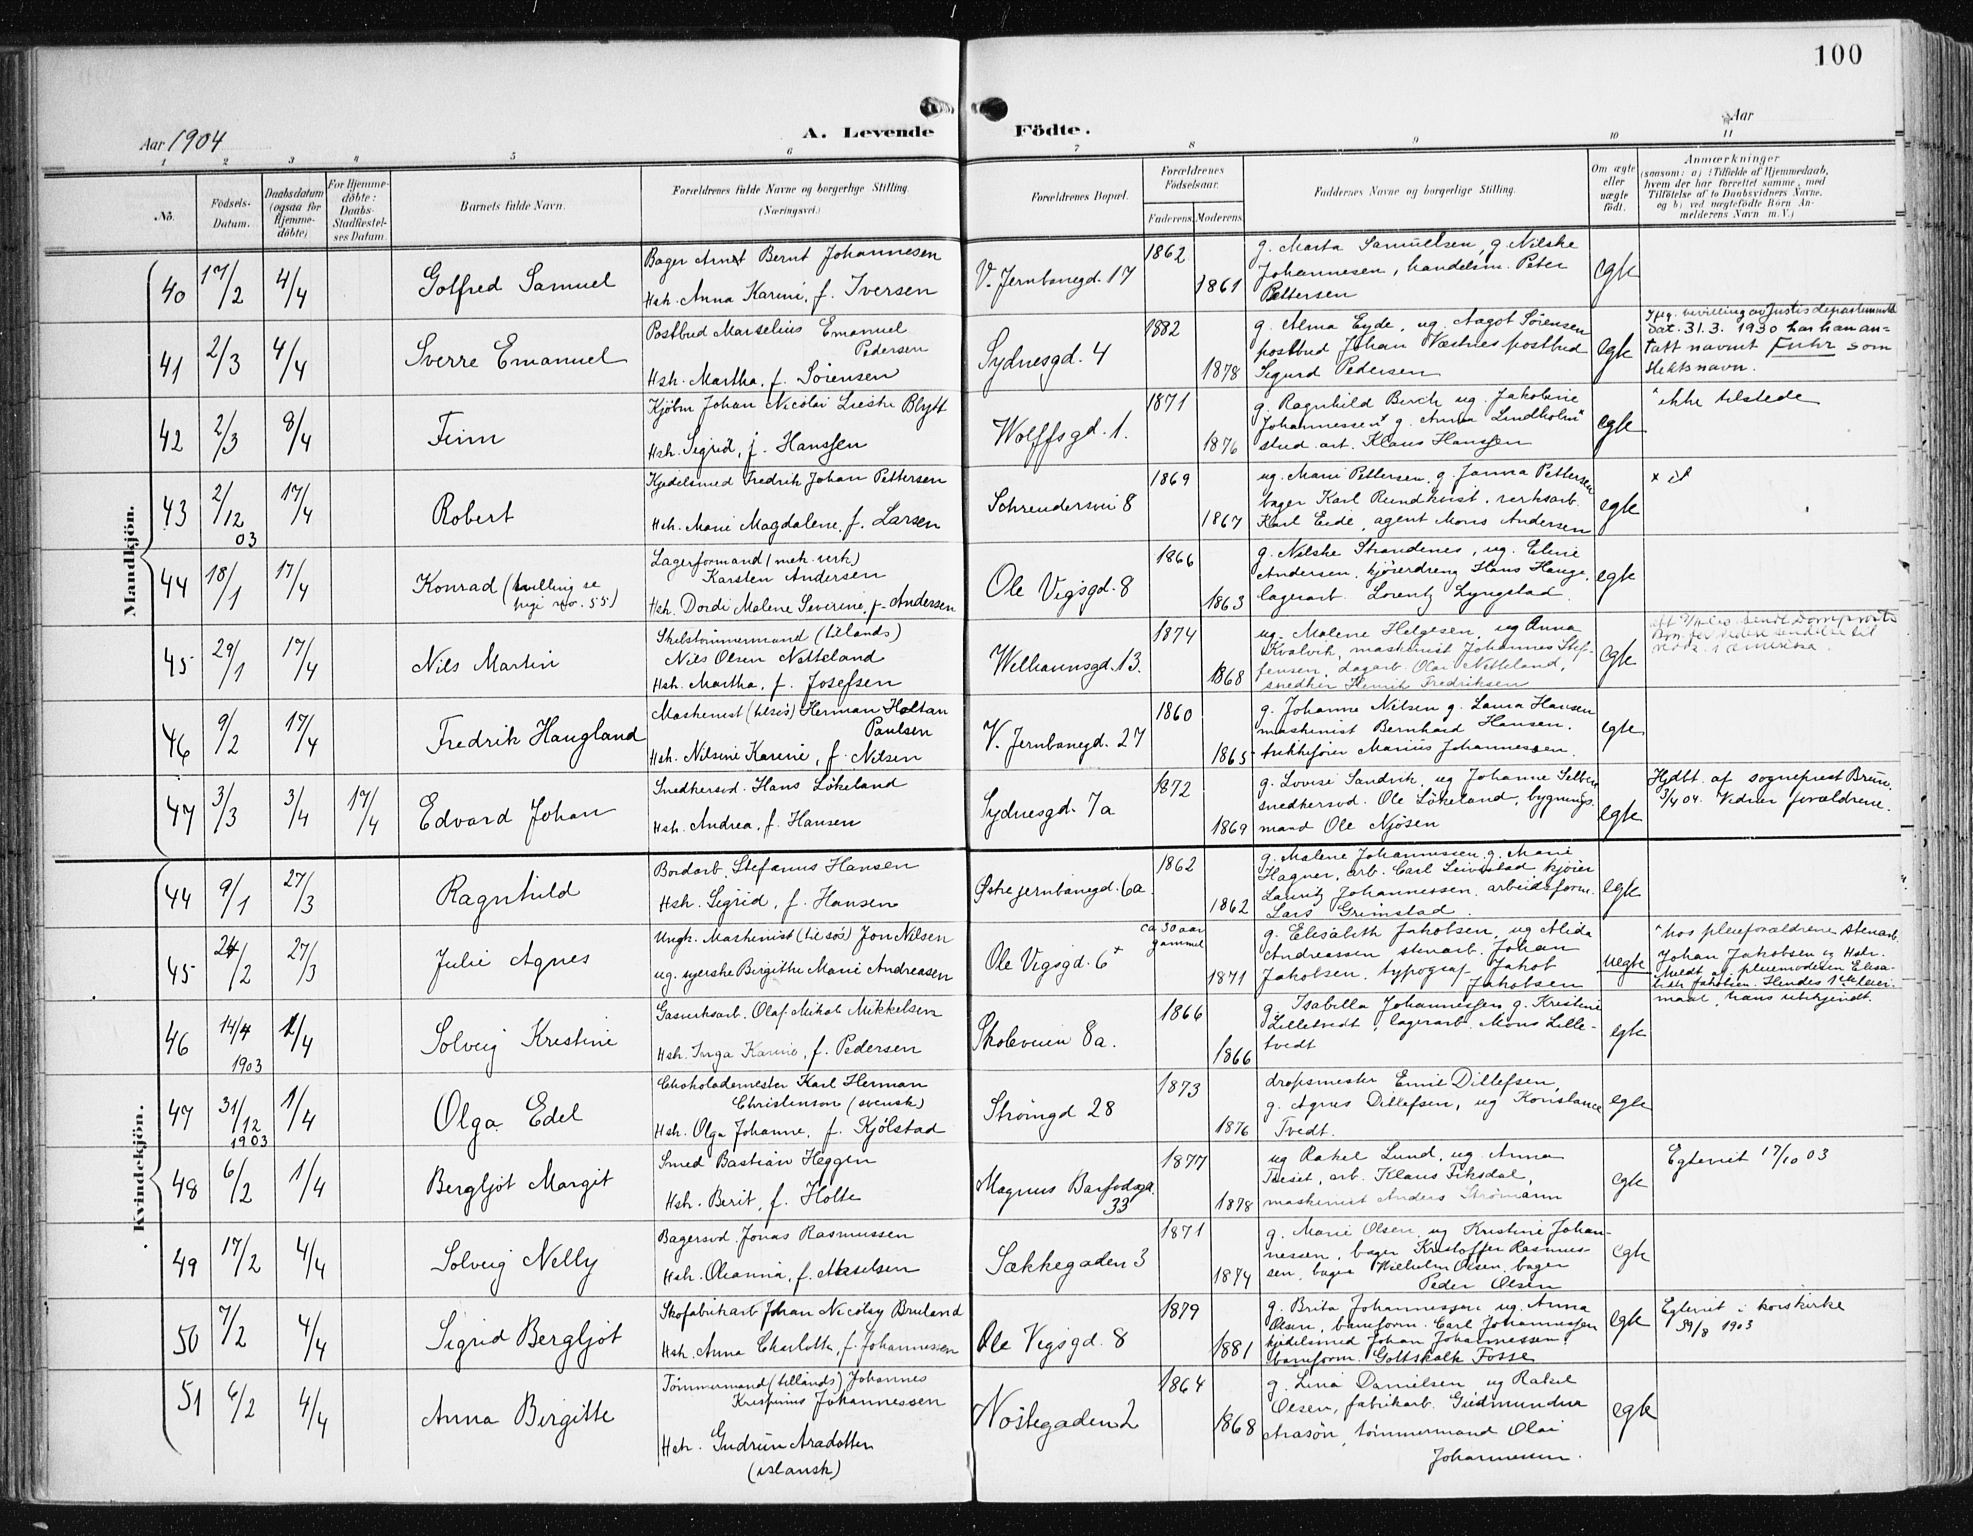 100
Aar 1904
A. Levende Födte.
Aar
1 2 3 4 5 6 7 8 9 10 11
No.
Födsels-Datum.
Daabsdatum (ogsaa for Hjemme-döbte)
For Hjemme-döbte: Daabs-Stadfæstel-ses Datum
Barnets fulde Navn.
Forældrenes fulde Navne og borgerlige Stilling. (Næringsvei.)
Forældrenes Bopæl.
Forældrenes Födselsaar.
Faderens. Moderens.
Faddernes Navne og borgerlige Stilling.
Om ægte eller uægte födt.
Anmærkninger
(saasom: a) i Tilfælde af Hjemmedaab, hvem der har forrettet samme, med Tilföielse af to Daabsvidners Navne, og b) ved uægtefödte Börn An-melderens Navn m.V.)
Mandkjön.
40 17/2 4/4 Gotfred Samuel
Bager Arnt Bernt Johannesen
Hstr. Anna Karini, f. Iversen
V. Jernbanegd. 17 1862 1861
g. Marta Samuelsen, g. Nilske
Johannesen, handelsm. Peter
Pettersen
egte
41 2/3 4/4 Sverre Emanuel
Postbud Marselius Emanuel
Pedersen
Hstr. Martha, f. Sörensen
Sydnesgd. 4 1882 1878
g. Alma Eyde, ug. Aagot Sörensen
postbud Johan Næstnes postbud
Sigurd Pedersen
egte
Ifölg. bevilling av Justisdepartementet
dat. 31.3. 1930 har han an-
tatt navnet Fuhr som
slektsnavn.
42 2/3 8/4 Finn
Kjöbm Johan Nicolai Lieske Blytt
Hstr. Sigrid, f. Hanssen
Wolffsgd. 1. 1871 1876
g. Ragnhild Birch ug. Jakobine
Johannessen g. Anna Lindholm
stud. art. Klaus Hanssen
egte
" ikke tilstede
43 2/12 03 17/4 Robert
Kjedelsmed Fredrik Johan Pettersen
Hstr. Marie Magdalene, f. Larsen
1869 1867
ug. Marie Pettersen, g. Janna Pettersen
bager Karl Rundkvist, verksarb.
Karl Eide, agent Mons Andersen
egte
44 18/1 17/4 Konrad (tvilling se
pige No. 55)
Lagerformand (mek. verk)
Karsten Andersen
Hstr. Dordi Malene Severine, f. Andersen
Ole Vigsgd. 8 1866 1863
g. Nilske Strandenes, ug. Eline
Andersen, kjöredreng Hans Hauge,
lagerarb. Lorentz Lyngstad.
egte
45 29/1 17/4 Nils Martin
Skibstömmermand (tillands)
Nils Olsen Netteland
Hstr. Martha, f. Josefsen
Welhavnsgd. 13. 1874 1868
ug. Malene Helgesen, ug Anna
Kvalvik, maskinist Johannes Stef-
fensen, dagarb. Olai Netteland,
snedker Henrik Fredriksen
egte
46 9/2 17/4 Fredrik Haugland
Maskinist (tilsös) Herman Holtan
Paulsen
Hstr. Nilsine Karine, f. Nilsen
V. Jernbanegd. 27 1860 1865
g. Johanne Nilsen g. Laura Hansen
maskinist Bernhard Hansen.
trikkeförer Marius Johannessen.
egte
47 3/3 3/4 17/4 Edvard Johan
Snedkersvd. Hans Lökeland
Hstr. Andrea, f. Hansen
Sydnesgd. 7a 1872 1869
g. Lovise Sandvik, ug Johanne
snedkersvd. Ole Lökeland, bygnings-
mand Ole Njösen
egte
Hjdbt. af sogneprest Bruun.
3/4 04. Vidner forældrene.
Kvindekjön.
44 9/1 27/3 Ragnhild
Bordarb. Stefanus Hansen
Hstr. Sigrid, f. Hansen
Östre jernbanegd. 6a. 1862 1862
g. Malene Johannessen, g. Marie
Hagner, arb. Carl kjörer
Lauritz Johannessen, arbeidsform.
Lars Grimstad.
egte
45 24/2 27/3 Julie Agnes
Ungk. Maskinist (tilsös) Jon Nilsen
ug. syerske Birgithe Marie Andreasen
Ole Vigsgd. 6 ca 30 aar
gammel 1871
g. Elisabeth Jakobsen, ug Alida
Andreassen stenarb. Johan
Jakobsen, typograf Jakob
Jakobsen
uegte
hos pleieforældrene stenarb.
Johan Jakobsen og Hstr.
Meldt af pleiemoderen Elisa-
beth Jakobsen. Hendes 1ste leier-
maal, hans ubekjendt.
46 14/4 1903 1/4 Solveig Kristine
Gasverksarb. Olaf Mikal Mikkelsen
Hstr. Inga Karine, f. Pedersen
Skoleveien 8a. 1866 1866
g. Isabella Johannessen g. Kristine
Lilletvedt, lagerarb. Mons Lille-
tvedt
egte
47 31/12 1903 1/4 Olga Edel
Chokolademester Karl Herman
Christenson (svensk)
Hstr. Olga Johanne, f. Kjölstad
Strömgd 28 1873 1876
dropsmester Emil Ditlefsen,
g. Agnes Ditlefsen, ug Konstance
Tvedt.
egte
48 6/2 1/4 Bergljot Margit
Smed Bastian Heggen
Hstr. Berit, f. Holte
Magnus Barfodsgd.
33 1877 1878
ug Rakel Lund, ug. Anna
arb. Klaus Fiksdal,
maskinist Anders Strömann
egte
Egteviet 17/10 03
49 17/2 4/4 Solveig Nelly
Bagersvd. Jonas Rasmussen
Hstr. Oleanna, f. Akselsen
Sækkegaden 3 1871 1874
g. Marie Olsen, ug Kristine Johan-
nessen, bager Kristoffer Rasmus-
sen, bager Wilhelm Olsen, bager
Peder Olsen
egte
50 7/2 4/4 Sigrid Bergljot
Skofabrikarb Johan Nicolay Bruland
Hstr. Anna Charlotte, f. Johannessen
Ole Vigsgd. 8 1879 1881
g. Brita Johannessen ug. Anna
Olsen, baneform. Carl Johannessen
kjedelsmed Johan Johannessen,
baneform. Gottskalk Fosse
egte
Egteviet i korskirke
/8 1903
51 6/2 4/4 Anna Bergitte
Tömmermand (tillands) Johannes
Krispinus Johannessen
Hstr. Gudrun Aradotter
(islandsk)
Nöstegaden 2 1864 1868
g. Lina Danielsen, ug Rakel
Olsen, fabrikarb. Gudmundur
Arasön, tömmermand Olai
Johannessen.
egte